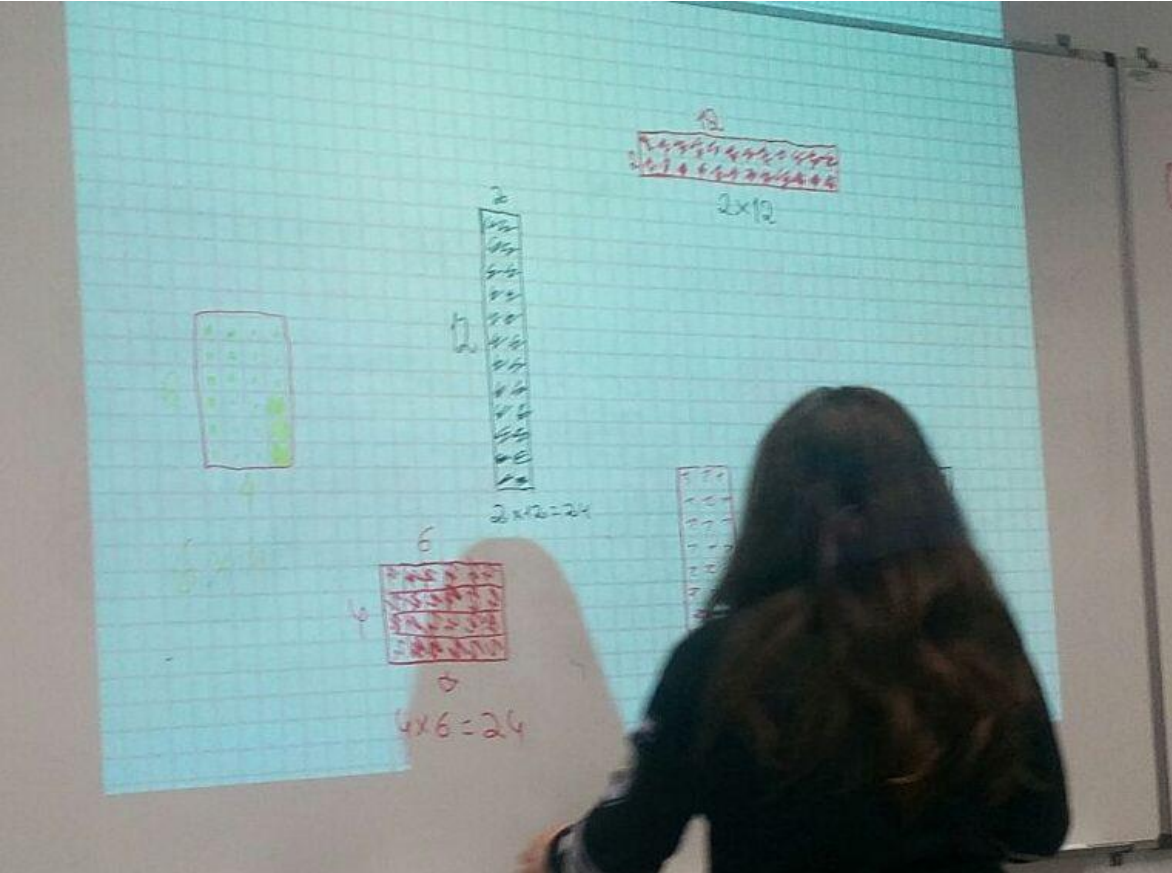 12
2
2×12
2
12
2×12=24
6
4
4×6=24